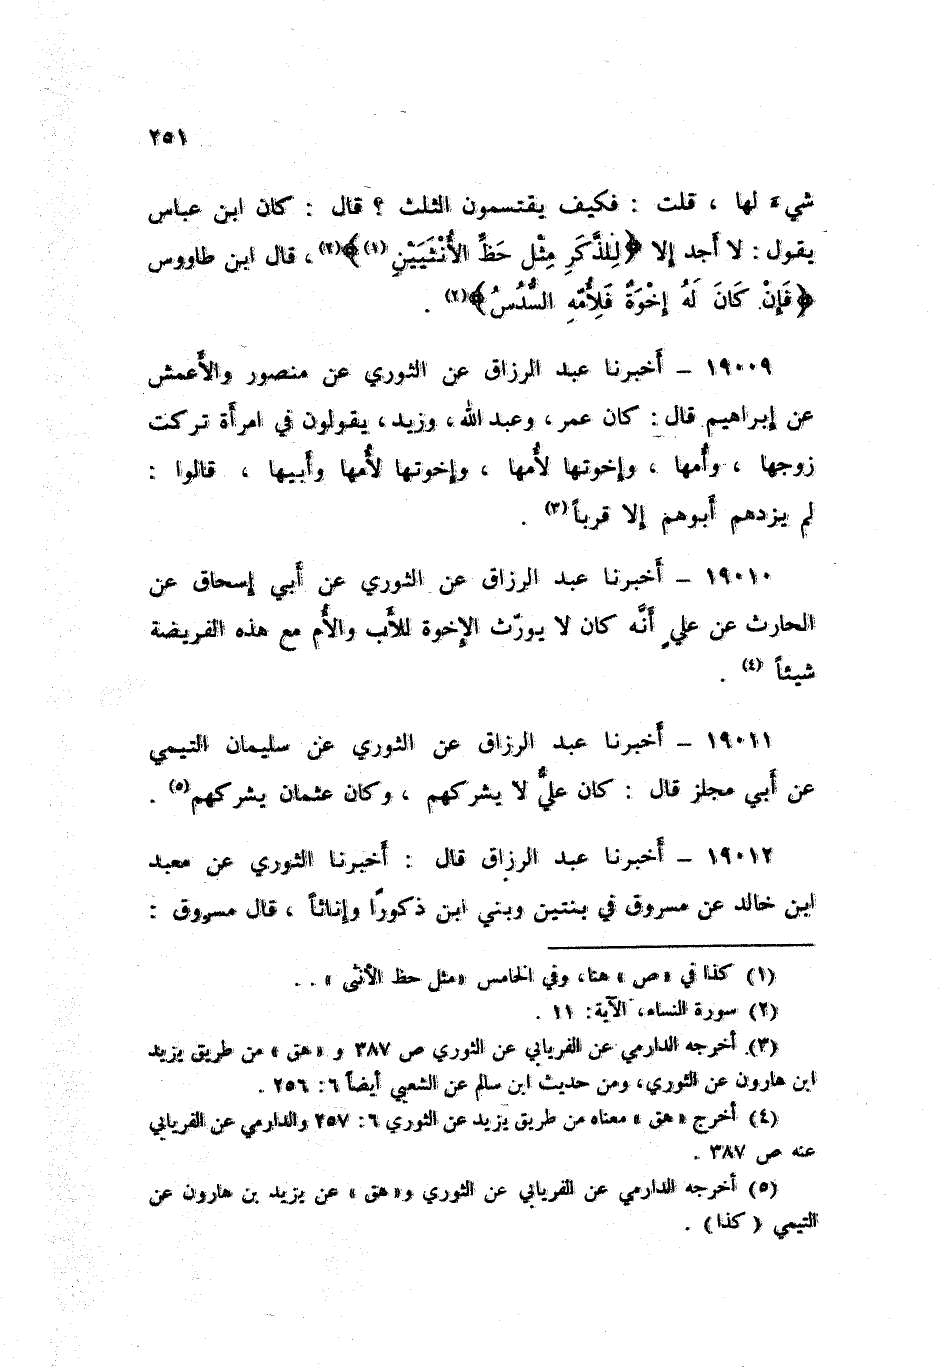 ٢٥١
شيء لها ، قلت : فكيف يقتسمون الثلث ؟ قال : كان ابن عباس
يقول : لا أجد إلا ﴿لِلذَّكَرِ مِثْل حَظِّ الأُنْثَيَيْنِ (١)﴾(٢) ، قال ابن طاووس
﴿فَإِنْ كَانَ لَهُ إِخْوَةٌ فَلِأُمّهِ السُّدُسُ﴾(٢) .
١٩٠٠٩ – أخبرنا عبد الرزاق عن الثوري عن منصور والأعمش
عن إبراهيم قال : كان عمر ، وعبد الله ، وزيد ، يقولون في امرأة تركت
زوجها ، وأُمها ، وإخوتها لأُمها ، وإخوتها لأُمها وأبيها ، قالوا :
لم يزدهم أبوهم إلا قرباً(٣) .
١٩٠١٠ – أخبرنا عبد الرزاق عن الثوري عن أبي إسحاق عن
الحارث عن عليٍ أنَّه كان لا يورّث الإخوة للأَب والأُم مع هذه الفريضة
شيئاً (٤) .
١٩٠١١ – أخبرنا عبد الرزاق عن الثوري عن سليمان التيمي
عن أبي مجلز قال : كان عليٌّ لا يشركهم ، وكان عثمان يشركهم(٥) .
١٩٠١٢ – أخبرنا عبد الرزاق قال : أخبرنا الثوري عن معبد
ابن خالد عن مسروق في بنتين وبني ابن ذكورًا وإناثاً ، قال مسروق :
(١) كذا في «ص» هنا، وفي الخامس «مثل حظ الأنثى» . .
(٢) سورة النساء، الآية: ١١ .
(٣) أخرجه الدارمي عن الفريابي عن الثوري ص ٣٨٧ و «هق» من طريق يزيد
ابن هارون عن الثوري، ومن حديث ابن سالم عن الشعبي أيضاً ٦: ٢٥٦ .
(٤) أخرج «هق» معناه من طريق يزيد عن الثوري ٦: ٢٥٧ والدارمي عن الفريابي
عنه ص ٣٨٧ .
(٥) أخرجه الدارمي عن الفريابي عن الثوري و«هق» عن يزيد بن هارون عن
التيمي (كذا) .